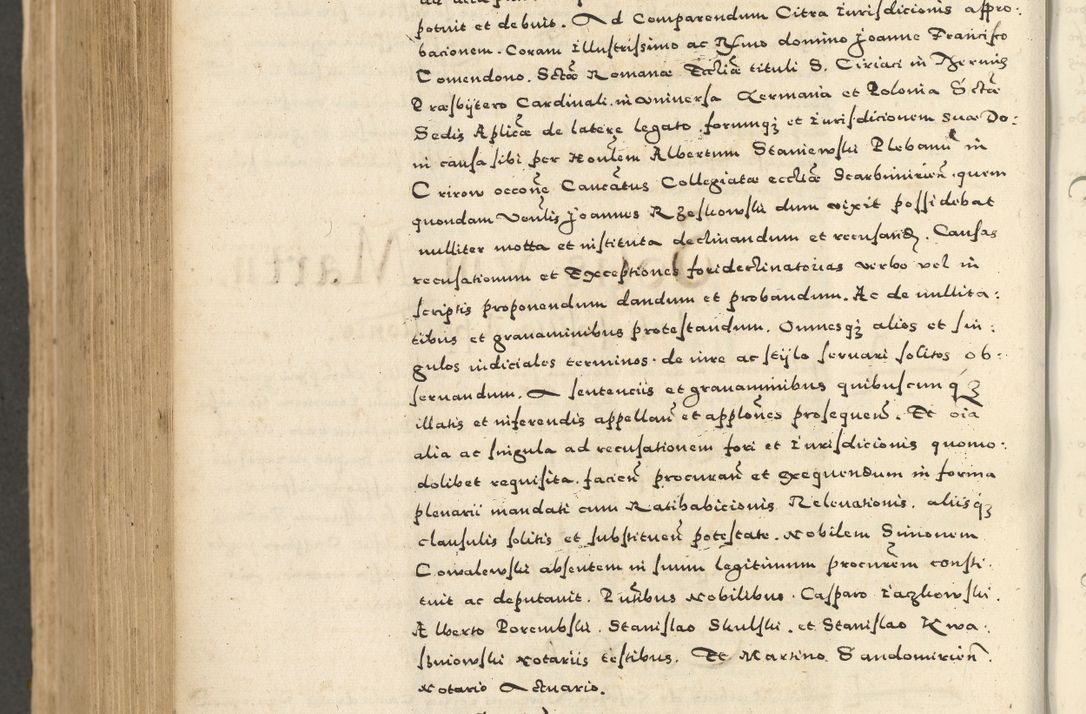 potuit et debuit. Ad Comparendum Citra iurisdicionis appro:
bacionem. Coram illustrissimo ac Rſmo domino Joanne Francisco
Comendono. Sctæ Romanæ Eccliæ tituli S. Ciriaci in Thermis
Præsbijtero Cardinali. in universa Germania et Polonia Sctæ
Sedis Aplicæ de latere legato. forumqȝ et iurisdicionem suæ Do:
ni causa sibi per Honlem Albertum Staniewski Plebanū in
occone Cancatus Collegiatæ eccliæ Scarbimirien. quem
quondam Venlis Joannes Rzeskowski dum vixit possidebat
nulliter motta et instituta declinandum et recusand. Causas
recusationum et Exceptiones forideclinatorias verbo vel in
scriptis proponendum dandum et probandum. Ac de nullita:
tibus et gravaminibus protestandum. Omnesqȝ alios et sin:
gulos iudiciales terminos. de iure ac stijlo servari solitos ob:
servandum. A sentenciis et gravaminibus quibuscunqȝ
illatis et inferendis appellan et applones prosequen. Et oīa
alia ac singula ad recusationem fori et iurisdicionis quomo:
dolibet requisita. facien procuran et exequendum in forma
plenarii mandati cum Ratihabicionis Relevationis. aliisqȝ
clausulis solitis et substituen potestate. Nobilem Simonem
Cowalewski absentem in suum legitimum procurem consti:
tuit ac deputavit. Pntibus Nobilibus. Casparo Iazkowski.
Alberto Porembski. Stanislao Skulski. et Stanislao Kwa:
sniowski Notariis testibus. Et Martino Sandomirien.
Notario Actuario.